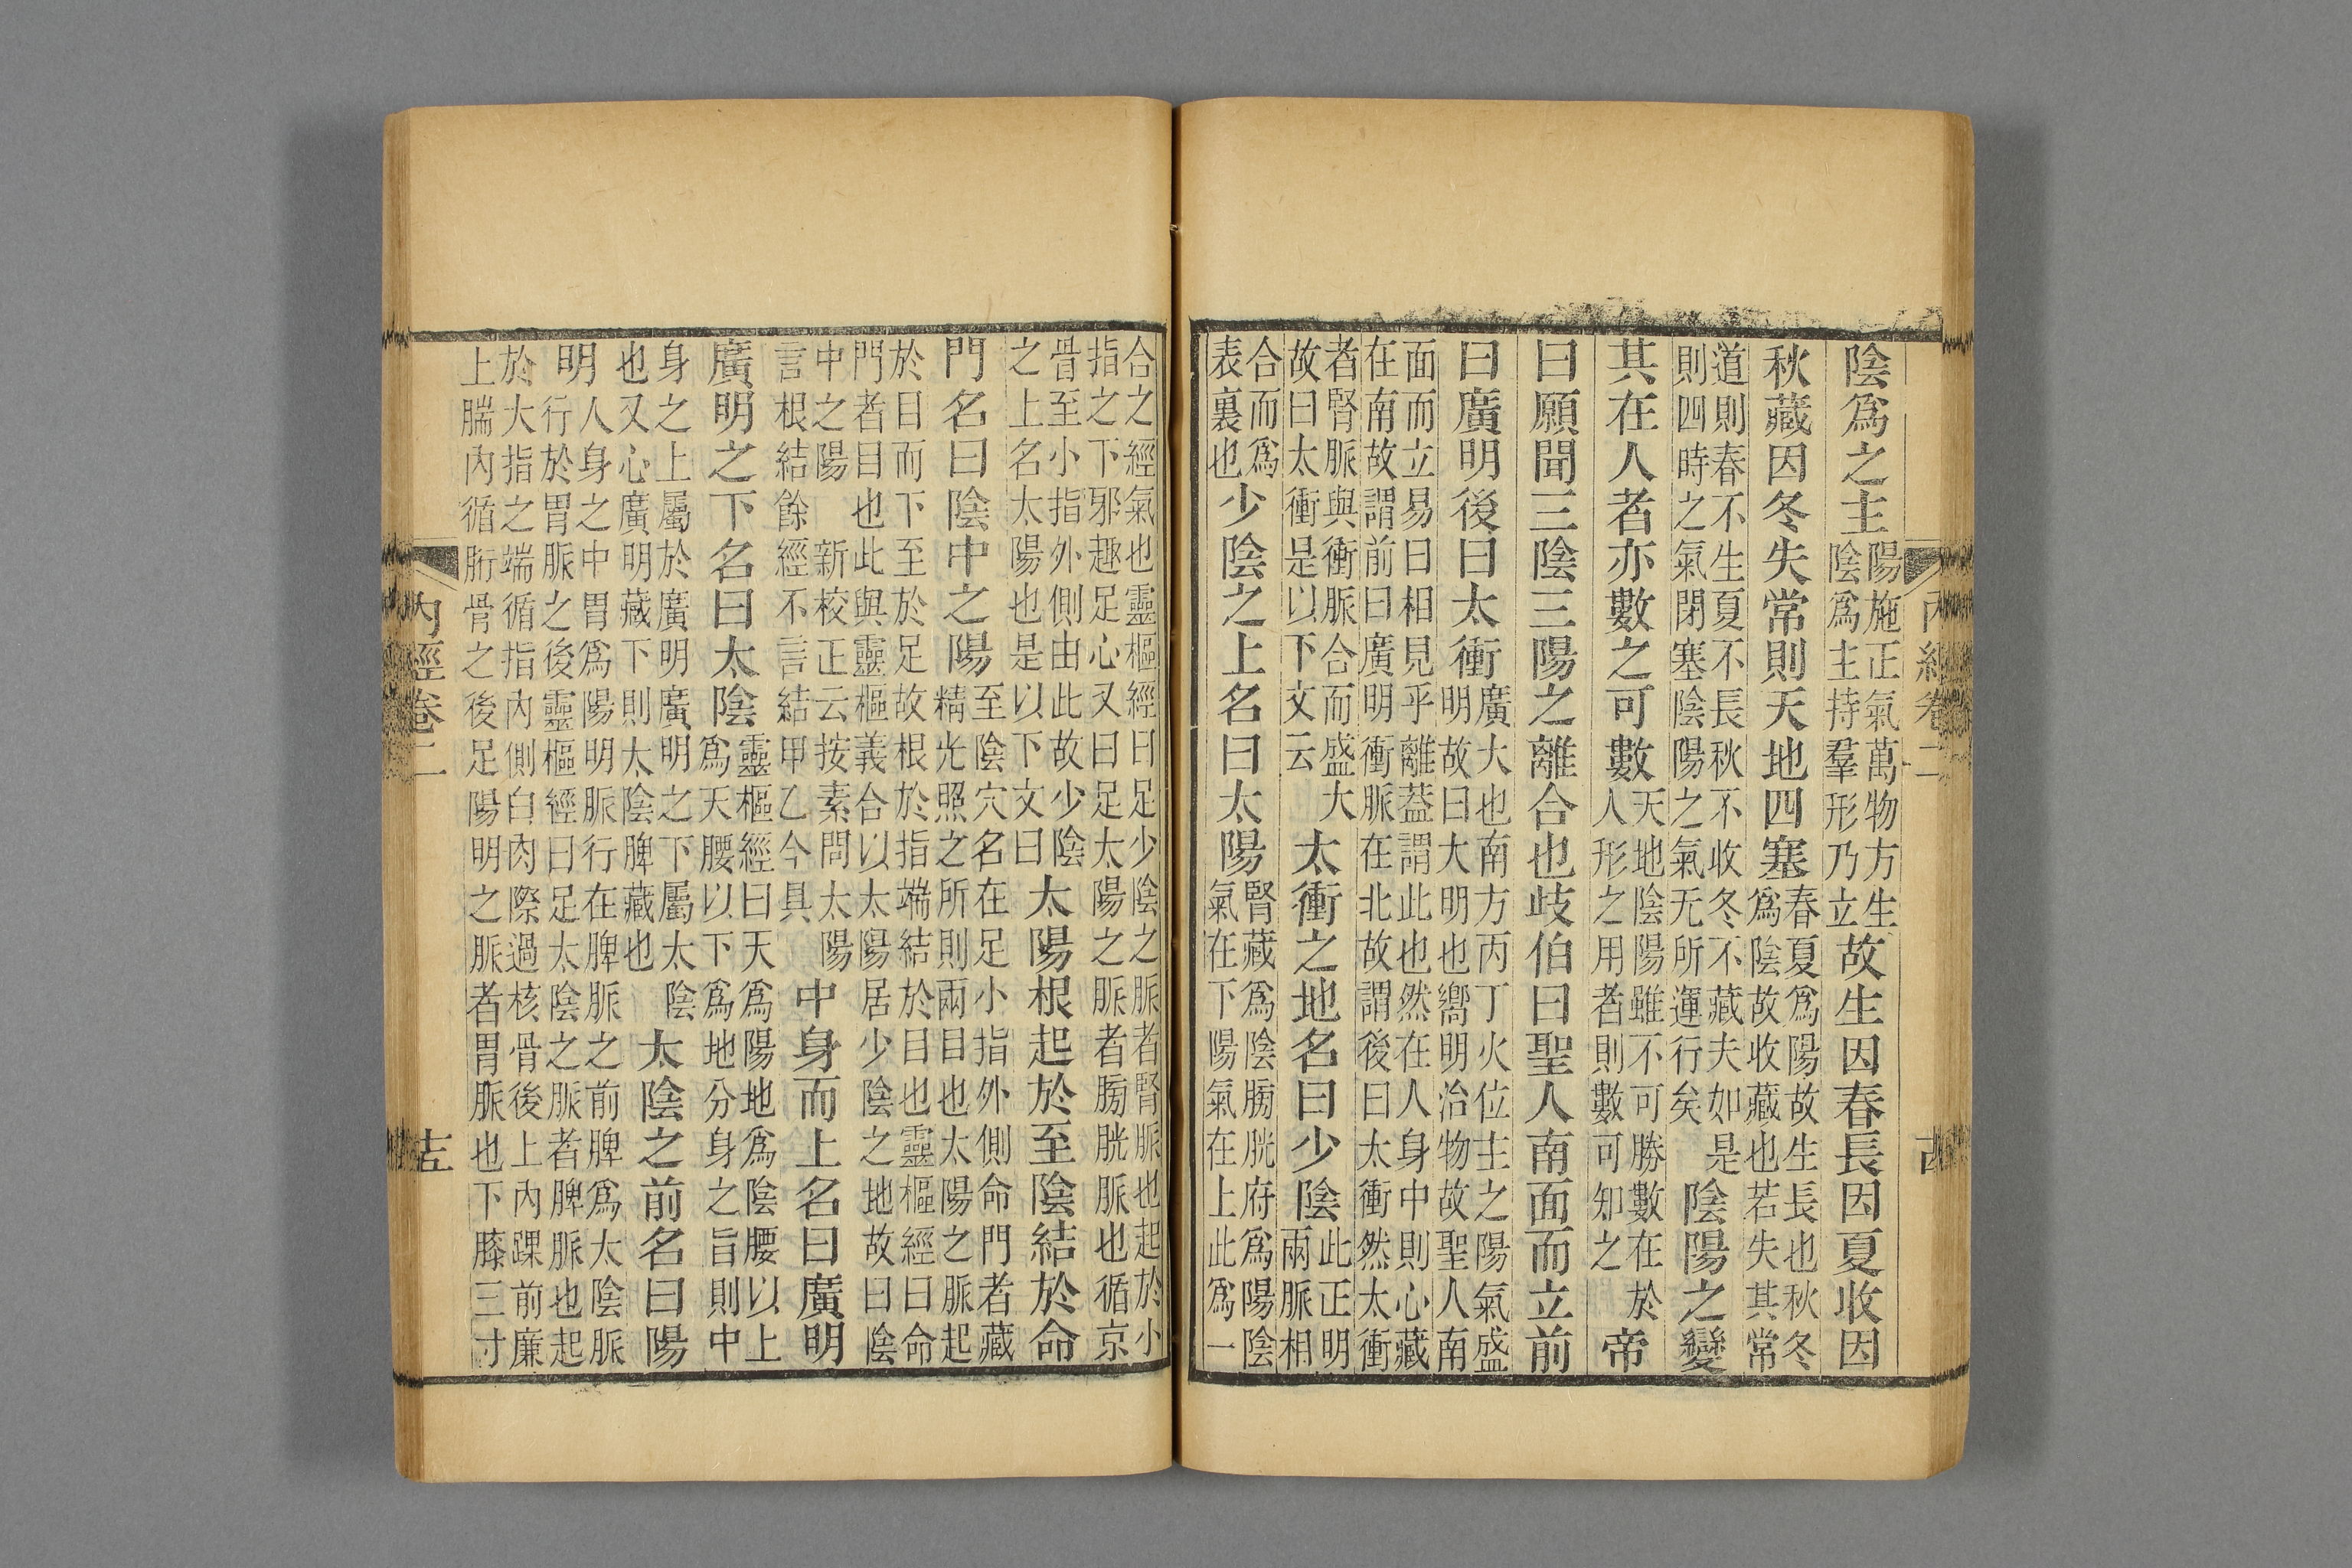 陰爲之主陽施正氣萬物方生陰爲主持羣形乃立故生因春長因夏收因
秋藏因冬失常則天地四塞春夏爲陽故生長也秋冬爲陰故收藏也若失其常
道則春不生夏不長秋不收冬不藏夫如是則四時之氣閉塞陰陽之氣无所運行矣陰陽之變
其在人者亦數之可數天地陰陽雖不可勝數在於人形之用者則數可知之帝
曰願聞三陰三陽之離合也歧伯曰聖人南面而立前
曰廣明後曰太衝廣大也南方丙丁火位主之陽氣盛明故曰大明也嚮明治物故聖人南
面而立易曰相見乎離蓋謂此也然在人身中則心藏在南故謂前曰廣明衝脈在北故謂後曰太衝然太衝
者腎脈與衝脈合而盛大故曰太衝是以下文云太衝之地名曰少陰此正明兩脈相
合而爲表裏也少陰之上名曰太陽腎藏爲陰膀胱府爲陽陰氣在下陽氣在上此爲一
合之經氣也靈樞經曰足少陰之脈者腎脈也起於小指之下邪趣足心又曰足太陽之脈者膀胱脈也循京
骨至小指外側由此故少陰之上名太陽也是以下文曰太陽根起於至陰結於命
門名曰陰中之陽至陰穴名在足小指外側命門者藏精光照之所則兩目也太陽之脈起
於目而下至於足故根於指端結於目也靈樞經曰命門者目也此與靈樞義合以太陽居少陰之地故曰陰
中之陽 新校正云按素問太陽言根結餘經不言結甲乙今具中身而上名曰廣明
廣明之下名曰太陰靈樞經曰天爲陽地爲陰腰以上爲天腰以下爲地分身之旨則中
身之上屬於廣明廣明之下屬太陰也又心廣明藏下則太陰脾藏也太陰之前名曰陽
明人身之中胃爲陽明脈行在脾脈之前脾爲太陰脈行於胃脈之後靈樞經曰足太陰之脈者脾脈也起
於大指之端循指內側白肉際過核骨後上內踝前廉上腨內循胻骨之後足陽明之脈者胃脈也下膝三寸
內經卷二